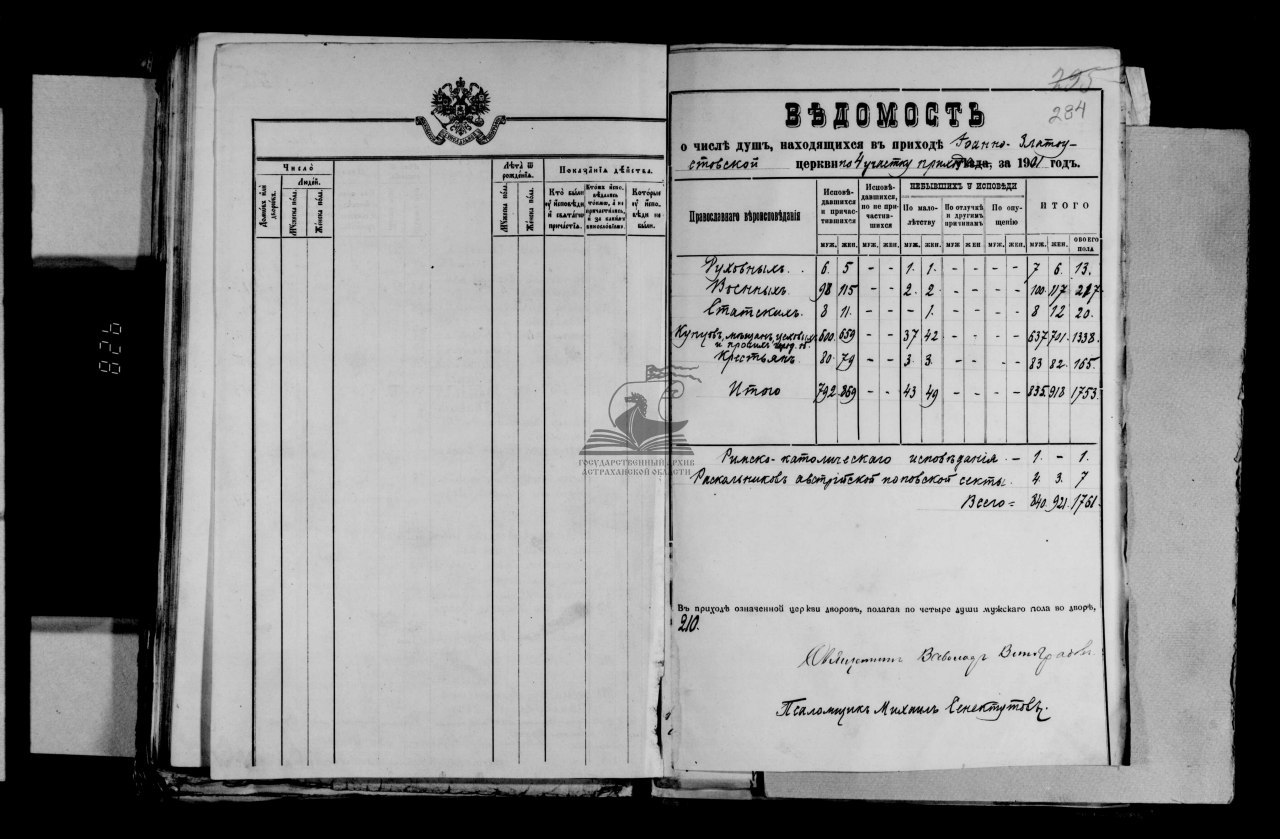 Число̀
Людей.
Домовъ или дворовъ.
Мꙋжеска пола.
Женска пола.
Лѣта ѿ рожденїѧ.
Мꙋжеска пола.
Женска пола.
Показанїѧ дѣйства.
Кто были оу исповѣди и свѧтаго причастїѧ.
Которые исповѣдались токмо, а не причастились, и за какимъ винословїемъ.
Которые оу исповѣди не были.
295
284
ВѢДОМОСТЬ
о числѣ душъ, находящихся въ приходѣ Іоанно-Златоу-
стовской церкви по 4 участку прихода, за 1901 годъ.
Православнаго вѣроисповѣданія
Исповѣдавшихся и причастившихся
Исповѣдавшихся, но не причастившихся
НЕБЫВШИХЪ У ИСПОВѢДИ
По малолѣтству
По отлучкѣ и другимъ причинамъ
По опущенію
ИТОГО
МУЖ. ЖЕН. МУЖ. ЖЕН. МУЖ. ЖЕН. МУЖ ЖЕН МУЖ. ЖЕН. МУЖ. ЖЕН. ОБОЕГО ПОЛА
Духовныхъ. 6. 5 - - 1. 1. - - - - 7 6. 13.
Военныхъ. 98 115 - - 2. 2. - - - - 100. 117 217.
Статскихъ. 8 11. - - - 1. - - - - 8 12 20.
Купцовъ, мѣщанъ, цеховыхъ 600. 659 - - 37 42 - - - - 637. 701. 1338.
и прочихъ город. об.
Крестьянъ. 80. 79 - - 3. 3. - - - - 83 82. 165.
Итого 792. 869 - - 43 49 - - - - 835. 918 1753.
Римско-католическаго исповѣданія. - 1. - 1.
Раскольниковъ австрійской поповской секты. 4. 3. 7
Всего = 840. 921. 1761.
Въ приходѣ означенной церкви дворовъ, полагая по четыре души мужскаго пола во дворѣ,
210.
Священникъ Всеволодъ Виноградовъ.
Псаломщикъ Михаилъ Сенектутовъ.
ГОСУДАРСТВЕННЫЙ АРХИВ
АСТРАХАНСКОЙ ОБЛАСТИ
928